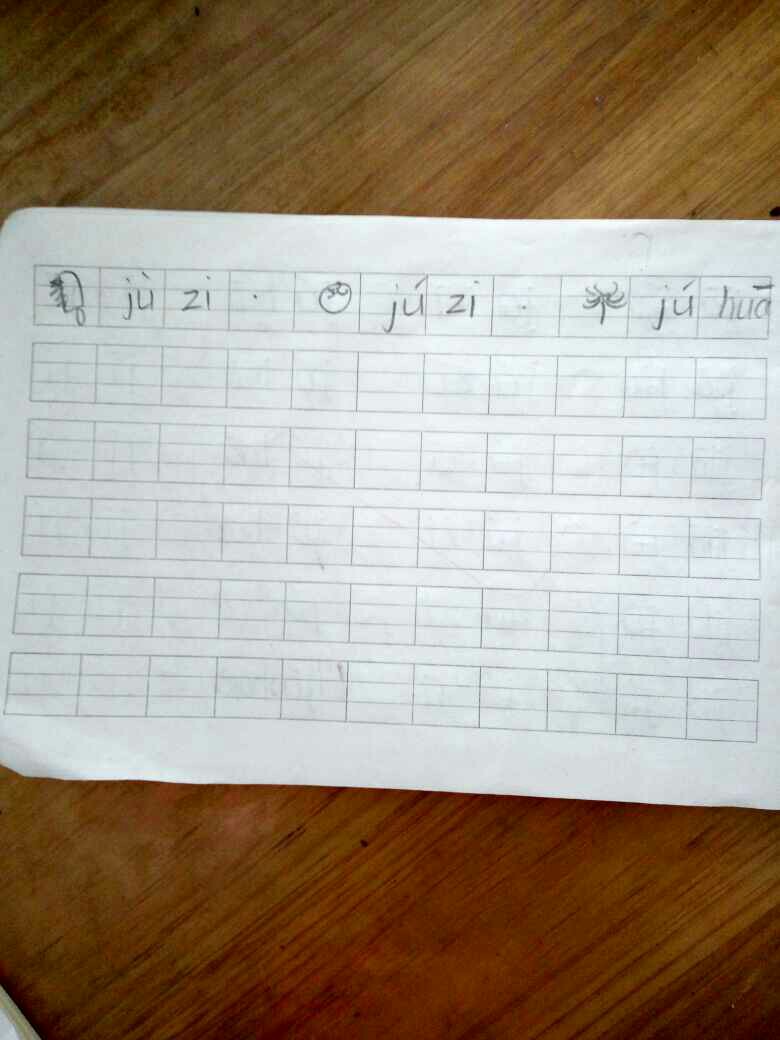 jù zi · jú zi · jú huā